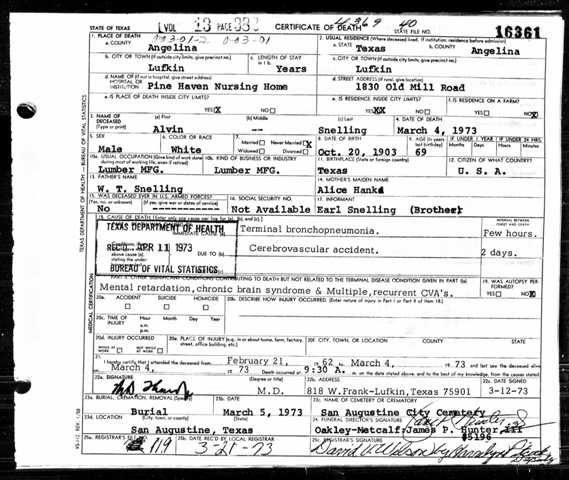 STATE OF TEXAS VOL 13 PAGE 332 CERTIFICATE OF DEATH 40
STATE FILE NO. 16361
1. PLACE OF DEATH
a. COUNTY Angelina
2. USUAL RESIDENCE (Where deceased lived. If institution: residence before admission)
a. STATE Texas b. COUNTY Angelina
b. CITY OR TOWN (If outside city limits, give precinct no.) Lufkin
c. LENGTH OF STAY in 1 b. Years
c. CITY OR TOWN (If outside city limits, give precinct no.) Lufkin
d. NAME OF (If not in hospital, give street address) HOSPITAL OR INSTITUTION Pine Haven Nursing Home
d. STREET ADDRESS (If rural, give location) 1830 Old Mill Road
e. IS PLACE OF DEATH INSIDE CITY LIMITS? YES X NO
e. IS RESIDENCE INSIDE CITY LIMITS? YES XX NO
f. IS RESIDENCE ON A FARM? YES NO X
3. NAME OF DECEASED (Type or print) (a) First Alvin (b) Middle -- (c) Last Snelling
4. DATE OF DEATH March 4, 1973
5. SEX Male
6. COLOR OR RACE White
7. Married Never Married X Widowed Divorced
8. DATE OF BIRTH Oct. 20, 1903
9. AGE (In years last birthday) 69
IF UNDER 1 YEAR Months Days IF UNDER 24 HRS. Hours Min.
10a. USUAL OCCUPATION (Give kind of work done during most of working life, even if retired) Lumber MFG.
10b. KIND OF BUSINESS OR INDUSTRY Lumber MFG.
11. BIRTHPLACE (State or foreign country) Texas
12. CITIZEN OF WHAT COUNTRY? U. S. A.
13. FATHER'S NAME W. T. Snelling
14. MOTHER'S MAIDEN NAME Alice Hanks
15. WAS DECEASED EVER IN U.S. ARMED FORCES? (Yes, no, or unknown) (If yes, give war or dates of service) No --
16. SOCIAL SECURITY NO. Not Available
17. INFORMANT Earl Snelling (Brother)
18. CAUSE OF DEATH [Enter only one cause per line for (a), (b), and (c).]
INTERVAL BETWEEN ONSET AND DEATH
TEXAS DEPARTMENT OF HEALTH
REC'D APR 11 1973
BUREAU OF VITAL STATISTICS
Terminal bronchopneumonia. Few hours.
DUE TO (b) Cerebrovascular accident. 2 days.
Mental retardation, chronic brain syndrome & Multiple, recurrent CVA's.
19. WAS AUTOPSY PERFORMED? YES NO X
20a. ACCIDENT SUICIDE HOMICIDE
20b. DESCRIBE HOW INJURY OCCURRED. (Enter nature of injury in Part I or Part II of item 18.)
20c. TIME OF INJURY Hour Month Day Year a.m. p.m.
20d. INJURY OCCURRED WHILE AT WORK NOT WHILE AT WORK
20e. PLACE OF INJURY (e.g., in or about home, farm, factory, street, office building, etc.)
20f. CITY, TOWN, OR LOCATION COUNTY STATE
21. I hereby certify that I attended the deceased from February 21, 62 March 4, 73 and last saw the deceased alive on
March 4, 73 Death occurred at 9:30 A. m. on the date stated above; and to the best of my knowledge, from the causes stated.
22a. SIGNATURE (Degree or title) M.D.
22b. ADDRESS 818 W. Frank-Lufkin, Texas 75901
22c. DATE SIGNED 3-12-73
23a. BURIAL, CREMATION, REMOVAL (Specify) Burial
23b. DATE March 5, 1973
23c. NAME OF CEMETERY OR CREMATORY San Augustine City Cemetery
23d. LOCATION (City, town, or county) (State) San Augustine, Texas
24. FUNERAL DIRECTOR'S SIGNATURE
Oakley-Metcalf: James P. Hunter, III #5196
25a. REGISTRAR'S FILE NO. 119
25b. DATE REC'D BY LOCAL REGISTRAR 3-21-73
25c. REGISTRAR'S SIGNATURE
TEXAS DEPARTMENT OF HEALTH — BUREAU OF VITAL STATISTICS
MEDICAL CERTIFICATION